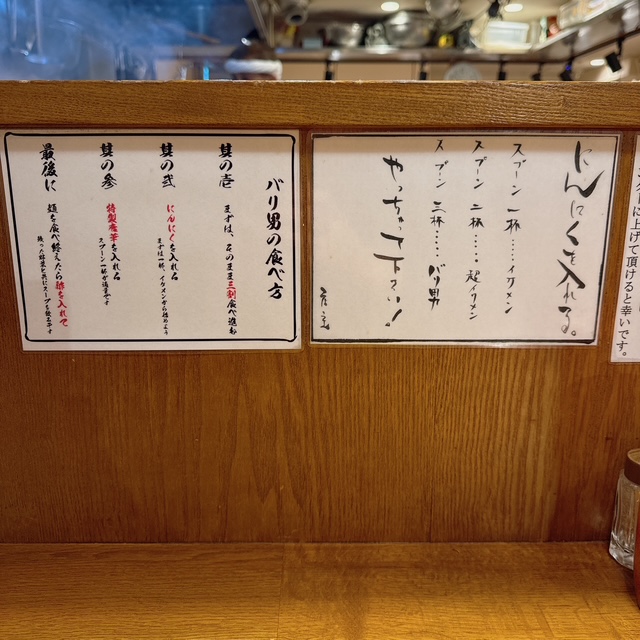 にんにくを入れる。
スプーン 一杯……イケメン
スプーン 二杯……超イケメン
スプーン 三杯……バリ男
やっちゃって下さい！
バリ男の食べ方
其の壱 まずは、そのまま三割食べ進む
其の弐 にんにくを入れる
まずは一杯、イケメンから始めよう
其の参 特製唐華を入れる
スプーン一杯が適量です
最後に 麺を食べ終えたら酢を入れて
残った野菜と共にスープを飲み干す
上げて頂けると幸いです。